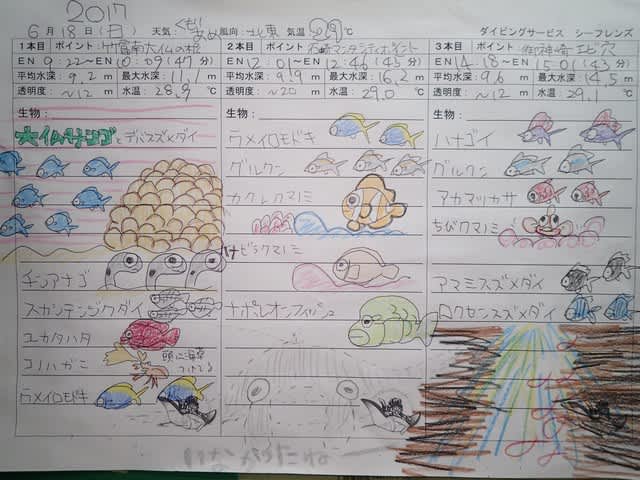 2017
6月18日(日) 天気: くもり あめ 風向: 北東 気温 29℃ ダイビングサービス シーフレンズ
1本目 ポイント 竹富南大仏の根
EN 9:22〜10:09 (47分)
平均水深: 9.2m 最大水深: 11.1m
透明度: ~12m 水温: 28.9℃
生物:
大イソバナゴとデバスズメダイ
チンアナゴ
スカシテンジクダイ
ユカタハタ
コノハガニ 頭に海草つけてる
ウメイロモドキ
2本目 ポイント 石崎マンタシティポイント
EN 12:01〜12:46 (45分)
平均水深: 9.9m 最大水深: 16.2m
透明度: ~20m 水温: 29.0℃
生物:
ウメイロモドキ
グルクン
カクレクマノミ
ハナビラクマノミ
ナポレオンフィッシュ
いなかったね
3本目 ポイント 御神崎エビ穴
EN 14:18〜15:01 (43分)
平均水深: 9.6m 最大水深: 14.5m
透明度: ~12m 水温: 29.1℃
生物:
ハナゴイ
グルクン
アカマツカサ
ちびクマノミ
アマミスズメダイ
ロクセンスズメダイ